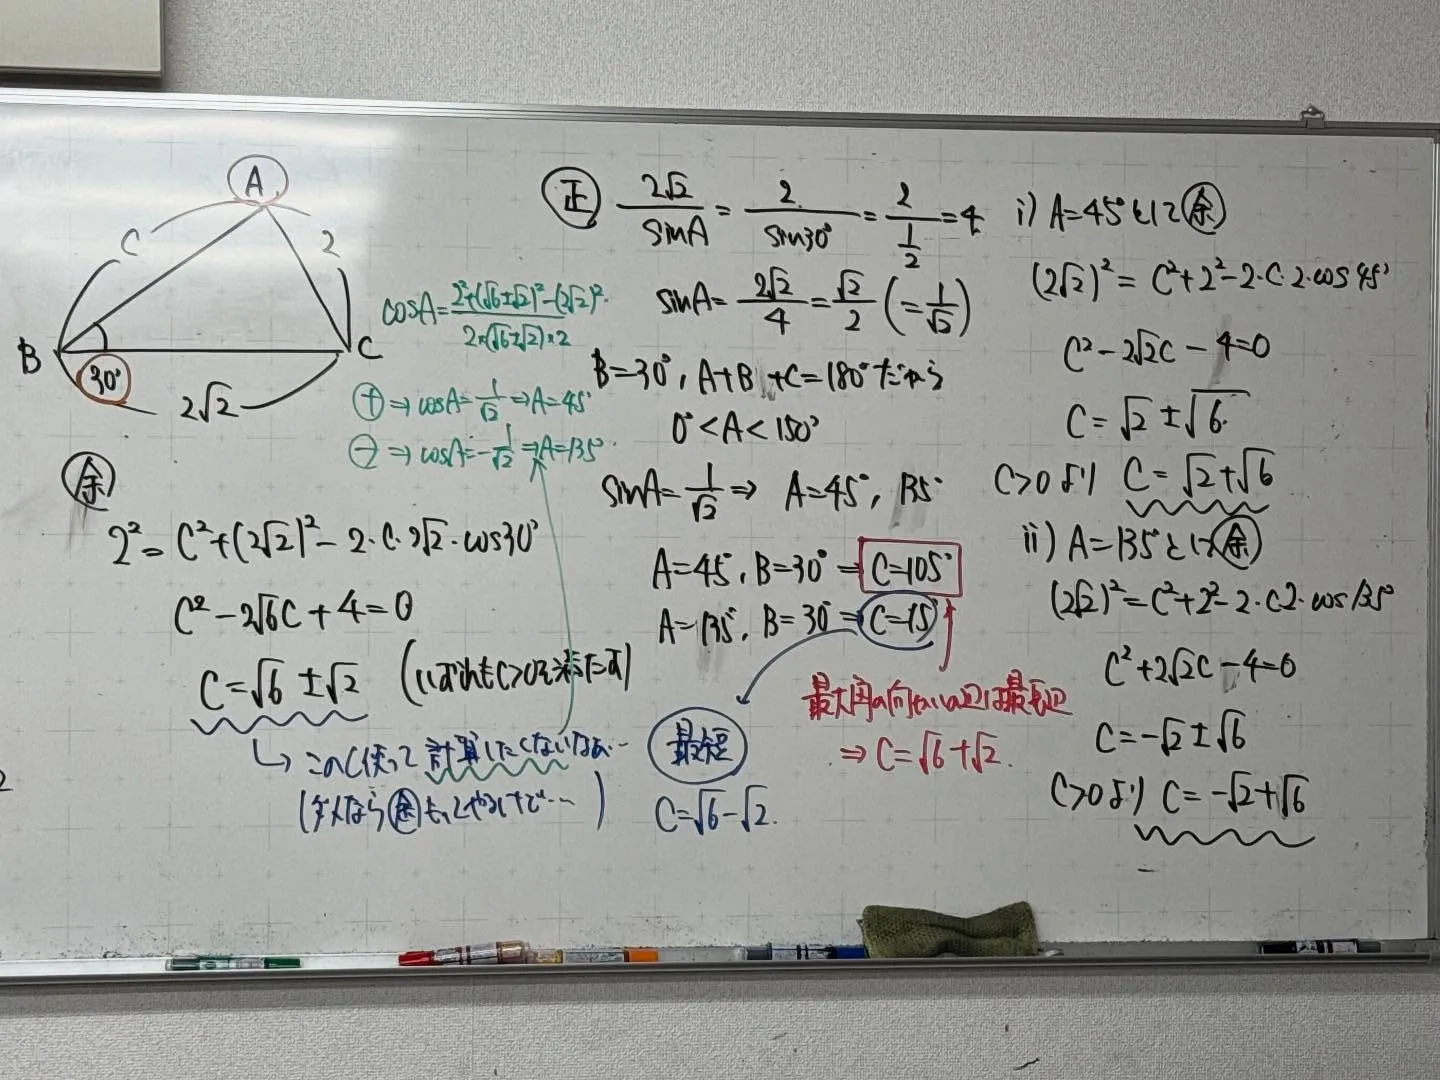 A
C
2
B
C
30°
2√2
cosA=(2²+(√6±√2)²-(2√2)²)/(2×(√6±√2)×2)
⊕⇒cosA=1/√2⇒A=45°
⊖⇒cosA=-1/√2⇒A=135°
余
2²=C²+(2√2)²-2・C・2√2・cos30°
C²-2√6C+4=0
C=√6±√2 (いずれもC>0を満たす)
↳このC使って計算したくないなぁ…
(ダメなら余もっとやめてで…)
正 2√2/sinA=2/sin30°=2/(1/2)=4
sinA=2√2/4=√2/2(=1/√2)
B=30°,A+B+C=180°だから
0°<A<150°
sinA=1/√2⇒A=45°,135°
A=45°,B=30°⇒C=105°
A=135°,B=30°⇒C=15°
最大角の向かいの辺は最長辺
⇒C=√6+√2.
最短
C=√6-√2.
i)A=45°として余
(2√2)²=C²+2²-2・C・2・cos45°
C²-2√2C-4=0
C=√2±√6.
C>0より C=√2+√6
ii)A=135°として余
(2√2)²=C²+2²-2・C・2・cos135°
C²+2√2C-4=0
C=-√2±√6
C>0より C=-√2+√6
2